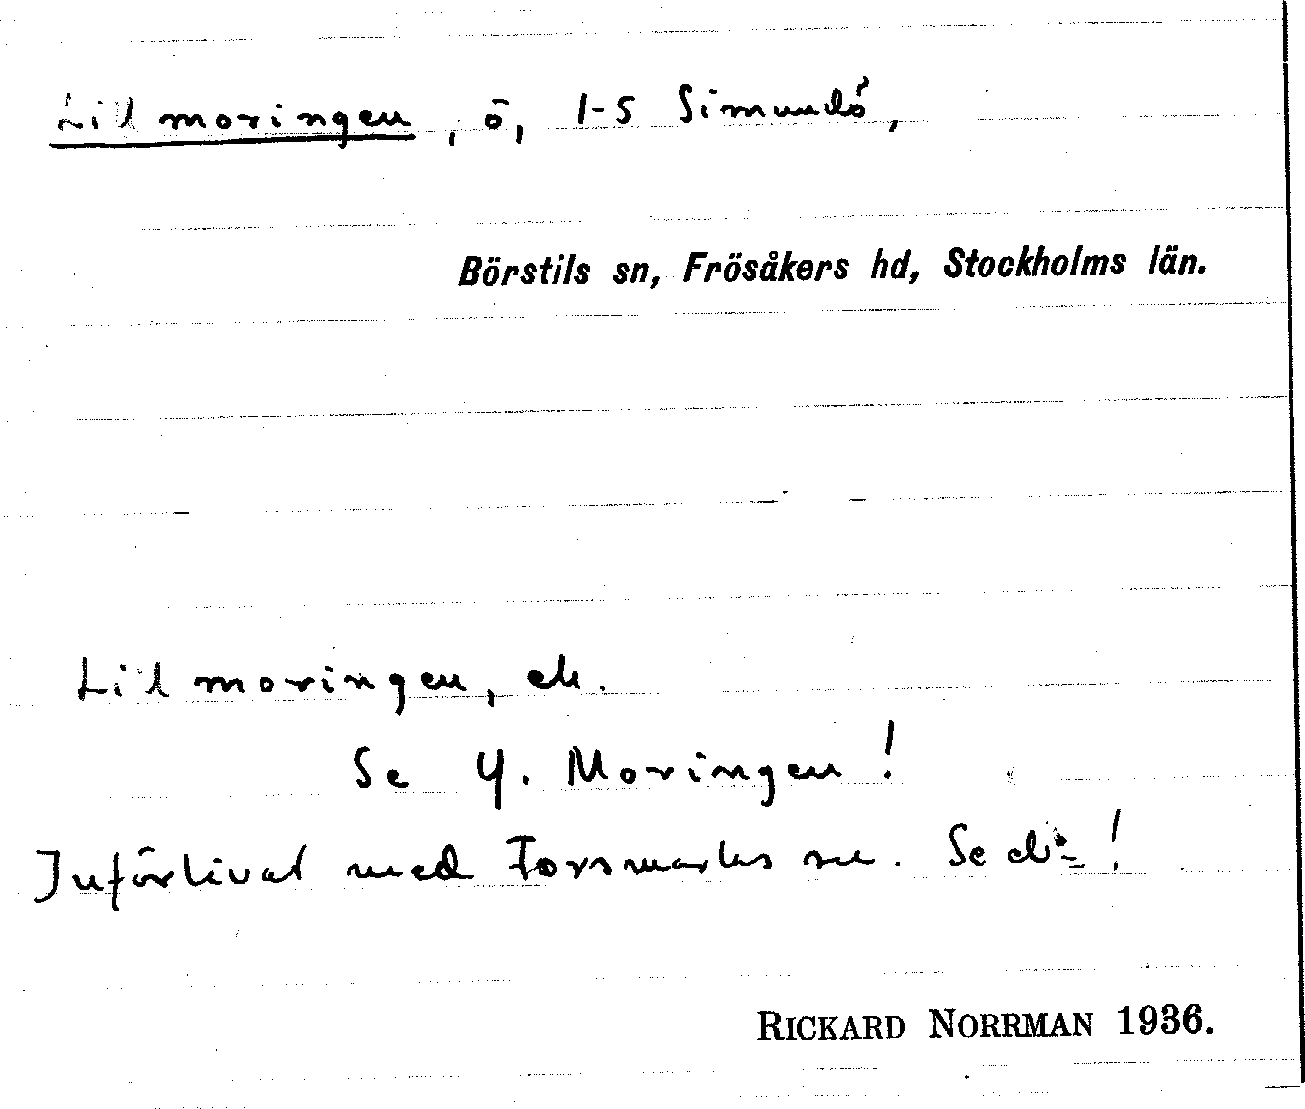 Lillmoringen, ö, 1-5 Simundö,
Börstils sn, Frösåkers hd, Stockholms län.
Lillmoringen, ek.
Se Y. Moringen!
Införlivat med Forsmarks sn. Se d:o!
RICKARD NORRMAN 1936.